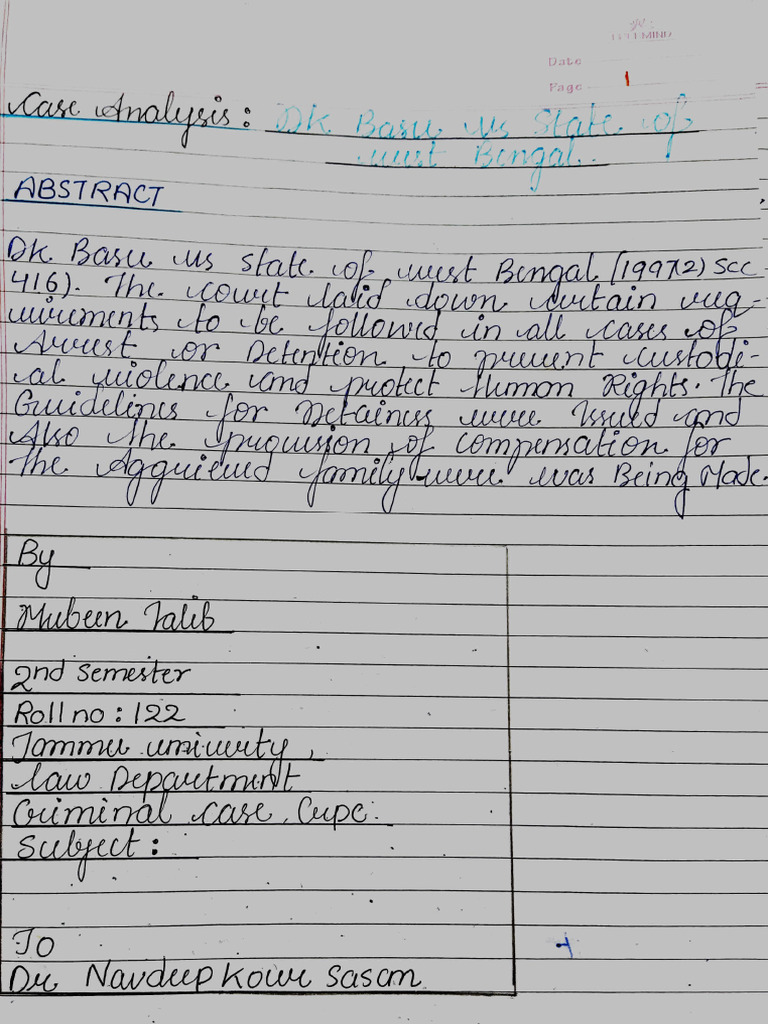 Date
Page 1
Case Analysis: DK Basu vs State of
west Bengal.
ABSTRACT
DK Basu vs State of west Bengal (1997(2) SCC
416). The court laid down certain req-
uirements to be followed in all cases of
Arrest or Detention to prevent custodi-
al violence and protect Human Rights. The
Guidelines for Detainess were Issued and
Also the provision of compensation for
the Aggrieved family were was Being Made.
By
Mubeen Talib
2nd Semester
Roll no: 122
Jammu university,
law Department
Criminal case. Crpc.
Subject:
To
Dr Navdeep Kour Sasan